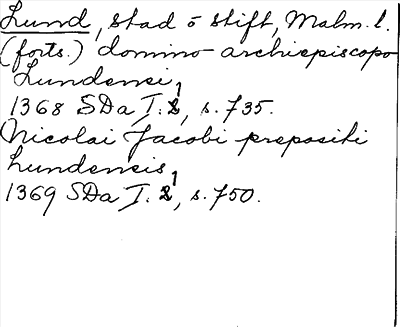 Lund, stad o stift, Malm. l.
(forts.) domino archiepiscopo
Lundensi,
1368 SDa I:2, s. 735.
Nicolai Jacobi prepositi
Lundensis,
1369 SDa I:2, s. 750.